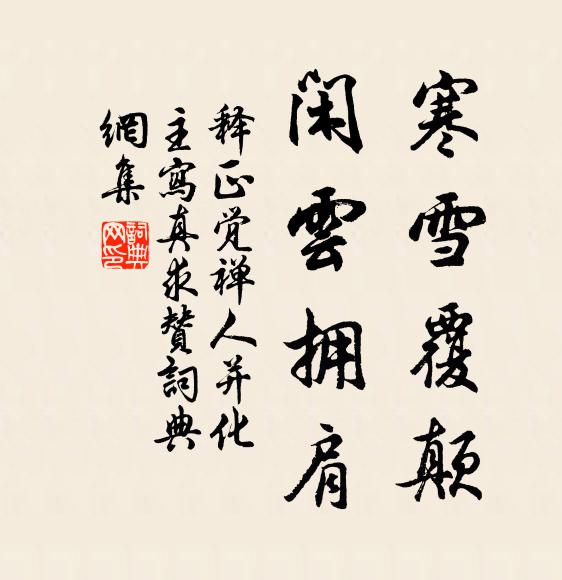 寒雪覆颠
闲雲拥肩
释正觉禅人并化
主寫真求贊詞典
網集
詞典網印